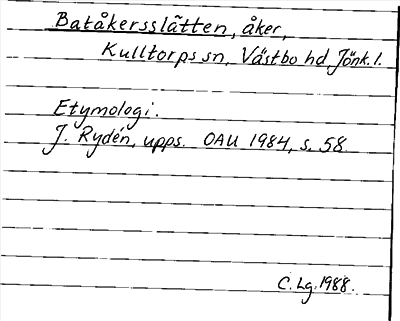 Batåkersslätten, åker,
Kulltorps sn, Västbo hd, Jönk. l.
Etymologi.
J. Rydén, upps. OAU 1984, s. 58.
C. Lg. 1988.